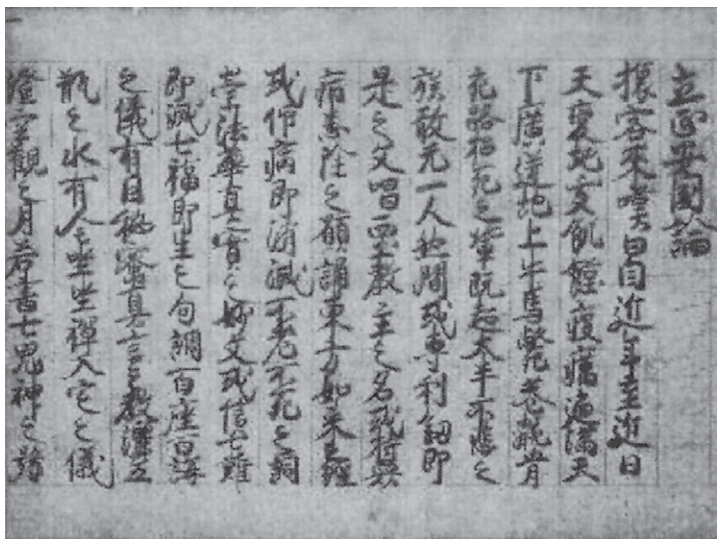 立正安国論
旅客来嘆曰自近年至近日
天変地夭飢饉疫癘遍満天
下廣迸地上牛馬斃巷骸骨
充路招死之輩既超大半不悲之
族敢无一人然間或専利剣即
是之文唱西土教主之名或持衆
病悉除之願誦東方如来之経
或仰病即消滅不老不死之詞
崇法華真實之妙文或信七難
即滅七福即生之句調百座百講
之儀有因秘密真言之教灑五
瓶之水有全坐禅入定之儀
澄空観之月若書七鬼神之号